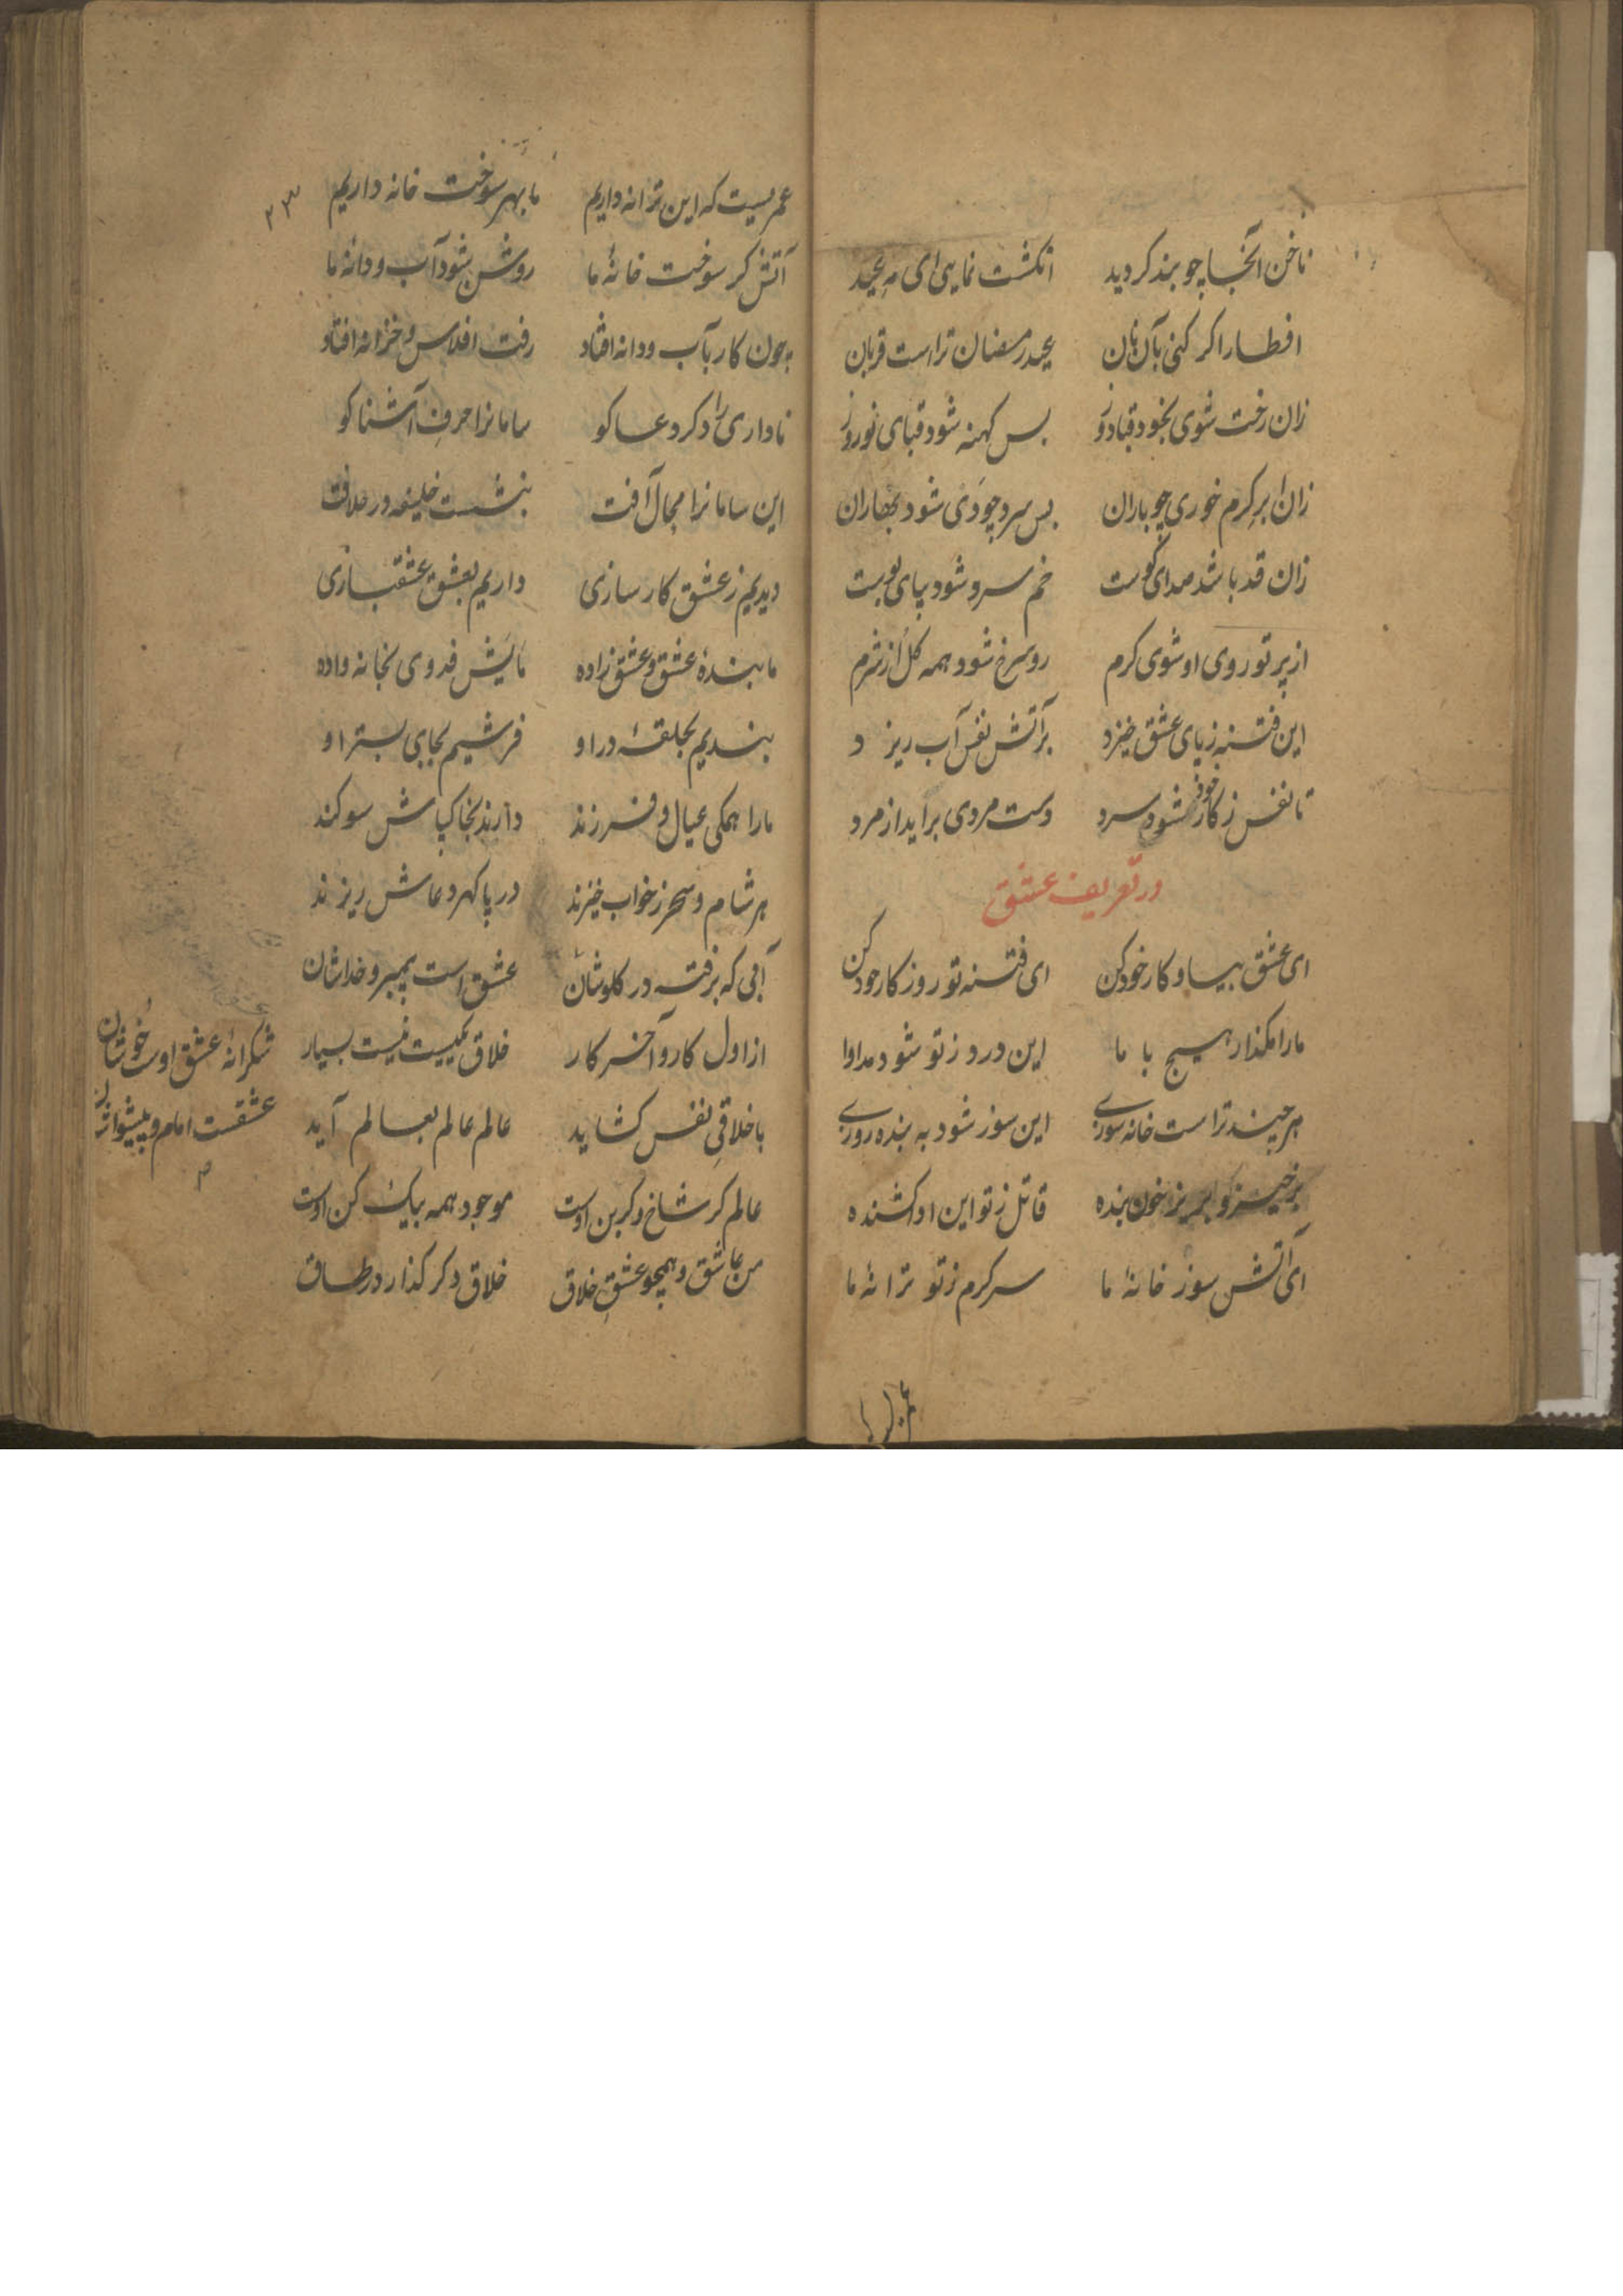 ناخن آنجا چو بند کردید انکشت نمایی ای مه عید
افطار اکر کنی بآن نان عید رمضان تراست قربان
زان رخت شوی بخود قبادوز بس کهنه شود قبای نوروز
زان ابر کرم خوری چو باران بس سرد چو دی شود بهاران
زان قد باشد صدای کوست خم سرو شود بپای بوست
از پرتو روی او شوی کرم رو سرخ شود همه کل از شرم
این فتنه زپای عشق خیزد بر آتش نفس آب ریزد
تا نفس ز کار خود شود سرد دست مردی برآید از مرد
در تعریف عشق
ای عشق بیا و کار خود کن ای فتنه تو روز کار خود کن
مارا مکذار هیچ با ما این درد ز تو شود مداوا
هر چند تراست خانه سوزی این سوز شود به بنده روزی
برخیز و بریز خون بنده قاتل ز تو این او کشنده
ای آتش سوز خانهٔ ما سرکرم ز تو ترانهٔ ما
۲۳
عمریست که این ترانه داریم ما بهر سوخت خانه داریم
آتش کر سوخت خانهٔ ما روشن شود آب و دانهٔ ما
چون کار بآب و دانه افتاد رفت افلاس و خزانه افتاد
ناداری را دکر دعا کو سامانرا حرف آشنا کو
این سامانرا مجال آفت بنشست خلیفه در خلافت
دیدیم ز عشق کارسازی داریم بعشق عشقبازی
ما بندهٔ عشق و عشق زاده مائیش فدوی بخانه داده
بندیم بحلقهٔ در او فرشیم بجای بستر او
مارا همکی عیال و فرزند دارند بخاکپاش سوکند
هر شام و سحر ز خواب خیزند در پا کهر دعاش ریزند
آبی که برفته در کلوشان عشق است پیمبر و خداشان
شکرانهٔ عشق اوست خوشان
عشقست امام و پیشواشان
از اول کار و آخر کار خلاق یکیست نیست بسیار
با خلاقی نفس کشاید عالم عالم بعالم آید
عالم کر شاخ و کر بن اوست موجود همه بیک کن اوست
من عاشق و همچو عشق خلاق خلاق دکر کذار در طاق